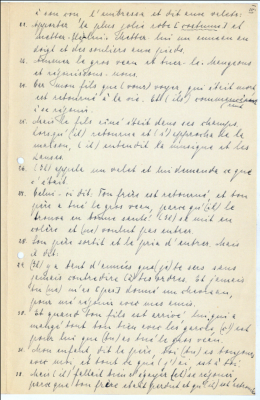 à son cou, l'embrassa et dit aux valets:
22. apportez la plus jolie robe (costume) et
mettez-lui. Mettez lui un anneau au
doigt et des souliers aux pieds.
23. Amenez le gros veau et tuez-le. Mangeons
et réjouissons-nous.
24. Car mon fils que (vous) voyez, qui était mort
est retourné à la vie. Et (ils) commencèrent
à se réjouir.
25. Mais le fils aîné était dans les champs
lorsqu'(il) retourna et (s')approcha de la
maison, (il) entendit la musique et les
danses.
26. (Il) appela un valet et lui demanda ce que
c'était.
27. Celui-ci dit: Ton frère est retourné, et ton
père a tué le gros veau, parce qu'(il) le
trouva en bonne santé. (28) se mit en
colère et (ne) voulut pas entrer.
Son père sortit et le pria d'entrer. Mais
il dit:
29. (Il) y a tant d'années que (je) te sers sans
jamais contredire tes ordres. Et jamais
(tu) (ne) m'as donné un chevreau,
pour me réjouir avec mes amis.
30. Et quand ton fils est arrivé, lui qui a
mangé tout ton bien avec les garces, (c')est
pour lui que (tu) as tué le gros veau.
31. Mon enfant, dit le père. Toi (tu) es toujours
avec moi, et tout ce qui est à moi, est à toi.
32. Mais (il) fallait bien s'égayer et se réjouir,
parce que ton frère était perdu et qu'(il) est